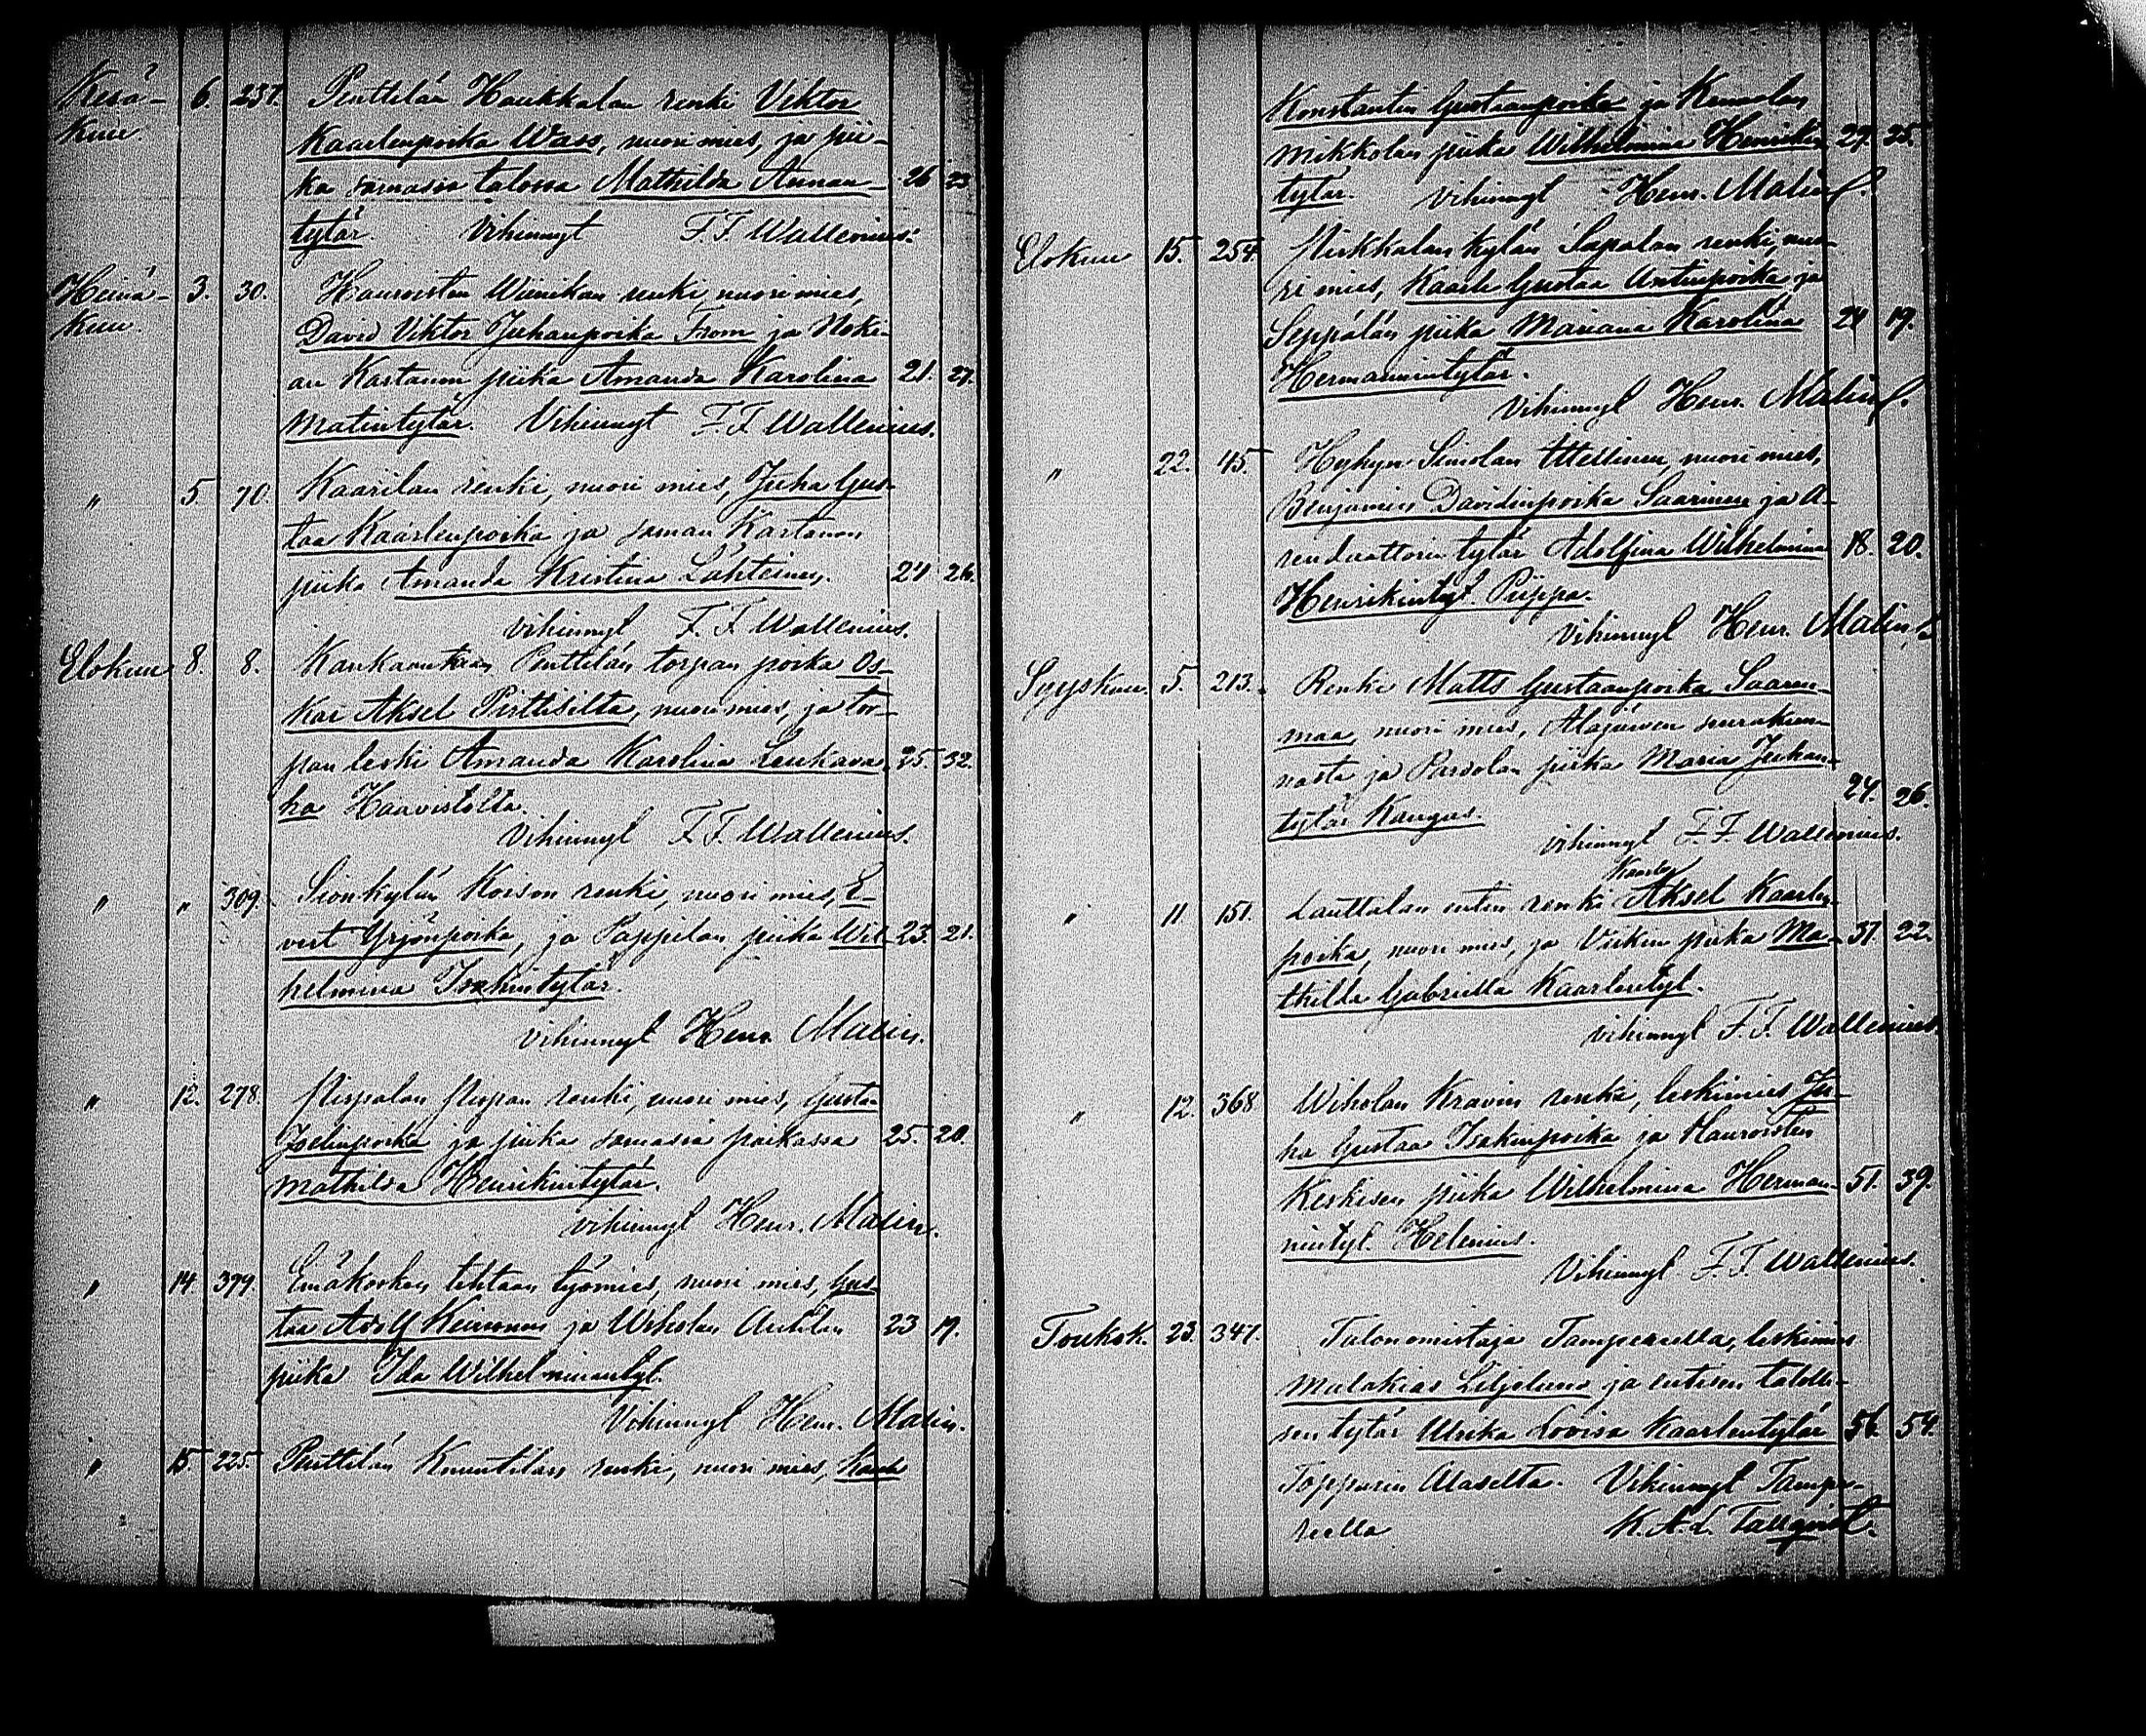 Kesä- 6. 237. Penttilän Haukkalan renki Viktor
kuu. Kaarlenpoika Wass, nuori mies, ja pii-
ka samassa talossa Mathilda Annan- 26 23
tytär. Vihinnyt F. F. Wallenius.
Heinä- 3. 30. Hauroisten Wiinikan renki, nuori mies,
kuu David Viktor Juhanpoika From ja Noki-
an Kartanon piika Amanda Karolina 21. 27.
Matintytär. Vihinnyt F. F. Wallenius.
" 5 70. Kaarilan renki, nuori mies, Juha Gus-
taa Kaarlenpoika ja saman Kartanon
piika Amanda Kristina Lähteinen. 24 26.
vihinnyt F. F. Wallenius.
Elokuu 8. 8. Kankaantaan Penttilän torpan poika Os-
kar Aksel Pirttisilta, nuori mies, ja tor-
pan leski Amanda Karolina Leukava- 35. 32.
ha Haavistolta.
Vihinnyt F. F. Wallenius.
" " 309. Sionkylän Koison renki, nuori mies, E-
vert Yrjönpoika, ja Pappilan piika Wil- 23. 21.
helmina Isakintytär.
vihinnyt Henr. Malin.
" 12. 278. renki, nuori mies, Gustaa
Joelinpoika ja piika samassa paikassa 25. 20.
Mathilda Henrikintytär.
vihinnyt Henr. Malin.
" 14 399. Emäkosken tehtaan työmies, nuori mies, Gus-
taa Adolf ja Wiholan Anttilan 23 19.
piika Ida Wilhelminantyt.
Vihinnyt Henr. Malin.
" 15. 225. Penttilän Knuutilan renki, nuori mies, Kaarle
Konstantin Gustaanpoika ja
Mikkolan piika Wilhelmina Henrikin 27. 25.
tytär. vihinnyt Henr. Malin.
Elokuu 15. 254. Pirkkalan kylän Sapalan renki, nuo-
ri mies, Kaarle Gustaa Antinpoika ja
Seppälän piika Mariana Karolina 24 19.
Hermannintytär.
Vihinnyt Henr. Malin.
" 22. 45. Hyhyn Simolan ittellinen, nuori mies,
Benjamin Davidinpoika Saarinen ja A-
renduattorin tytär Adolfina Wilhelmina 18. 20.
Henrikintyt. Piippo.
vihinnyt Henr. Malin.
Syyskuu. 5. 213. Renki Matts Gustaanpoika Saaren-
maa, nuori mies, Alajärven seurakun-
nasta ja Parsolan piika Maria Juhan-
tytär Kangas. 24. 26.
vihinnyt F. F. Wallenius.
Kaarle
" 11 151. Lauttalan entin renki Aksel Kaarlen-
poika, nuori mies, ja Virkin piika Ma- 37 22.
thilda Gabriella Kaarlentyt.
vihinnyt F. F. Wallenius.
" 12. 368 Wiholan Kravin renki, leskimies Ju-
ha Gustaa Isakinpoika ja Hauroisten
Keskisen piika Wilhelmina Herman- 51. 39.
nintyt. Helenius.
Vihinnyt F. F. Wallenius.
Toukok. 23. 347. Talonomistaja Tampereella, leskimies
Malakias Liljelund ja entisen talolli-
sen tytär Ulrika Lovisa Kaarlentytär 56. 54.
Topparin Alaselta. Vihinnyt Tampe-
reella K. A. L. Tallqvist.